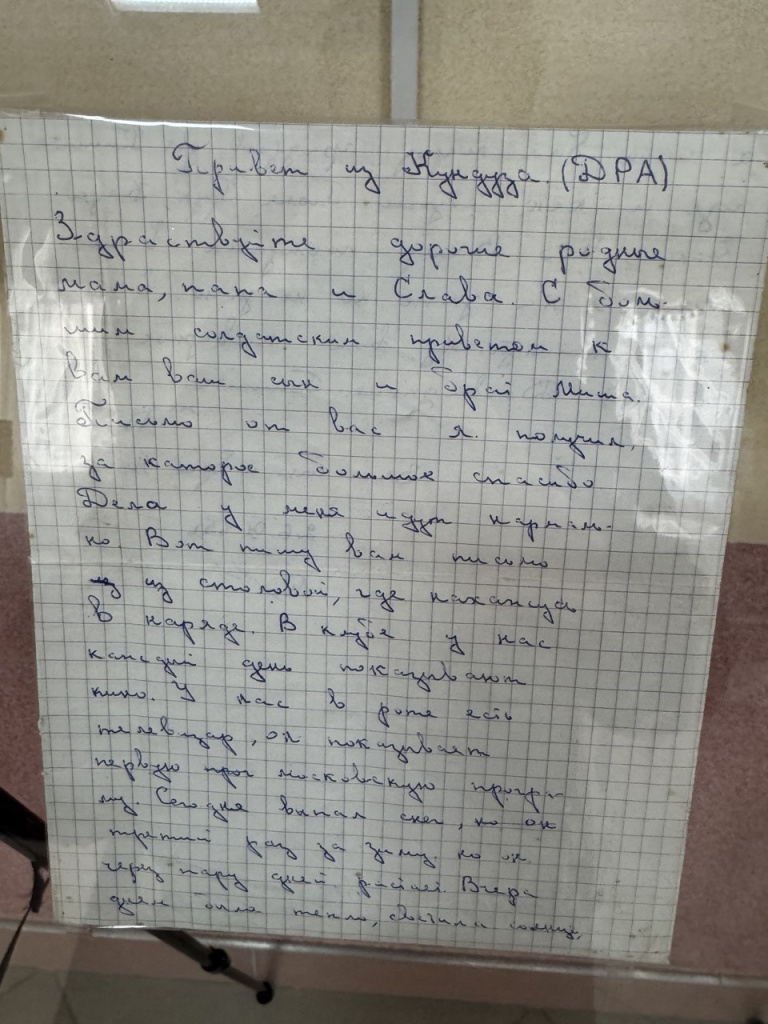 Привет из Кундуза (ДРА)
Здраствуйте дорогие родные
мама, папа и Слава. С боль-
шим солдатским приветом к
Вам ваш сын и брат Миша.
Письмо от вас я получил,
за каторое большое спасибо
Дела у меня идут нармаль-
но Вот пишу вам письмо
из столовой, где нахажусь
в наряде. В клубе у нас
каждый день показывают
кино. У нас в роте есть
телевизар, он показывает
первую московскую програ-
му. Сегодня выпал снег, но он
третий раз за зиму но он
через пару дней растает Вчера
днём было тепло, светила солнце,